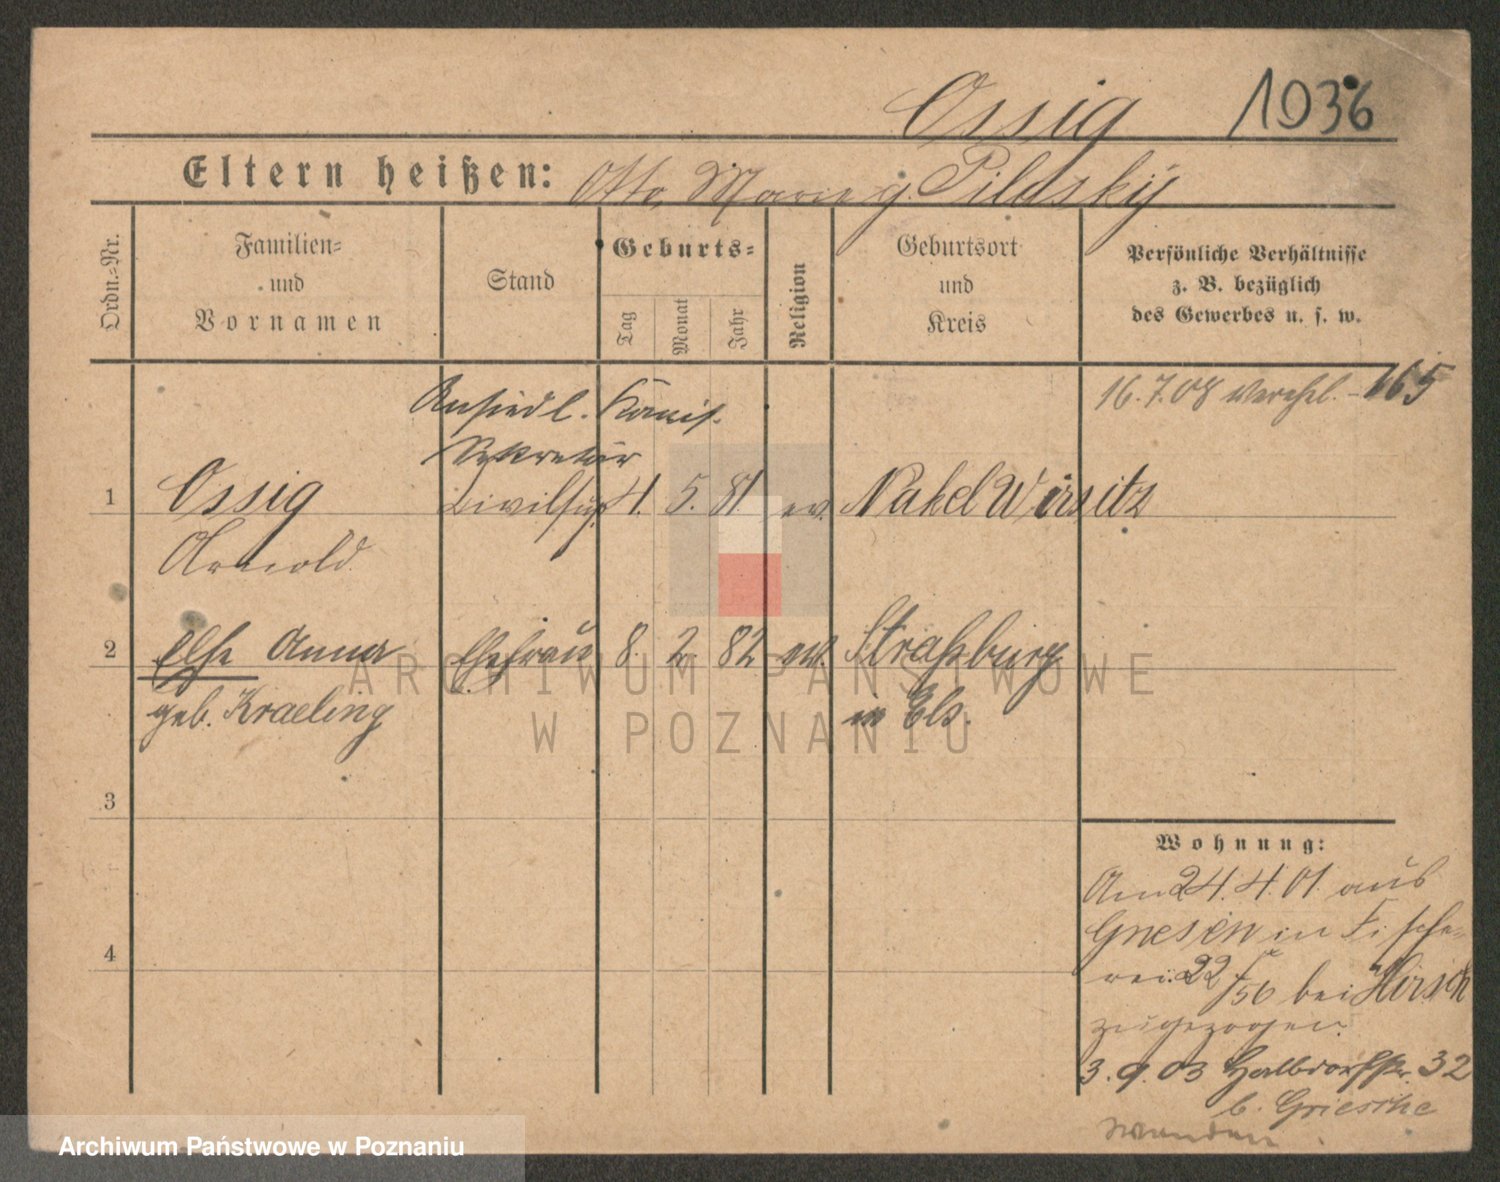 Ossig 1036
Eltern heißen: Otto, Marie g. Pilasky
Ordn.=Nr.
Familien=
und
Vornamen
Stand
Geburts=
Tag
Monat
Jahr
Religion
Geburtsort
und
Kreis
Persönliche Verhältnisse
z. B. bezüglich
des Gewerbes u. s. w.
16.7.08 verehl. - 165
Ansiedl. Komis.
Sekretär
1 Ossig Civilsup. 4. 5. 81. ev. Nakel Wirsitz
Arnold
2 Else Anna Ehefrau 8. 2. 82 ev. Straßburg
geb. Kraeling in Els.
3
4
Wohnung:
Am 24.4.01. aus
Gnesen in Fische-
rei 22 /56 bei Hirsch
zugezogen.
3.9.03 Halbdorfstr. 32
b. Griesche
ARCHIWUM PAŃSTWOWE
W POZNANIU
Archiwum Państwowe w Poznaniu